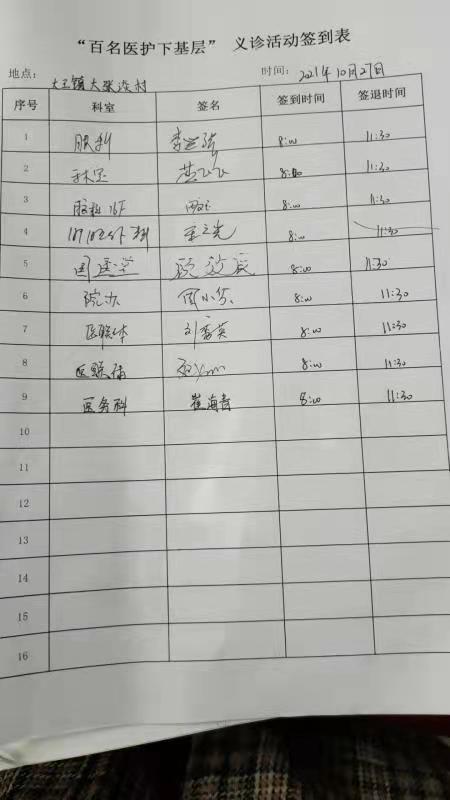 “百名医护下基层” 义诊活动签到表
地点： 大王镇大张淡村 时间： 2021年10月27日
序号 科室 签名 签到时间 签退时间
1 眼科 8:00 11:30
2 8:00 11:30
3 8:00 11:30
4 8:00 11:30
5 国医堂 8:00 11:30
6 院办 周小芬 8:00 11:30
7 医联体 刘秀英 8:00 11:30
8 医联体 8:00 11:30
9 医务科 崔海青 8:00 11:30
10
11
12
13
14
15
16